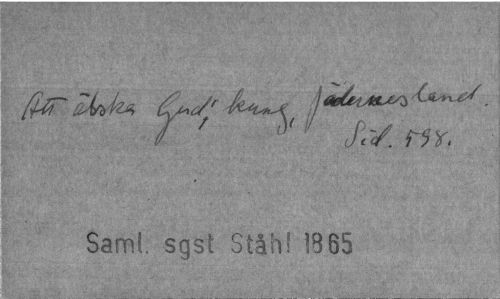 Att älska Gud, kung, fädernesland.
Sid. 598.
Saml. sgst Ståhl 1865